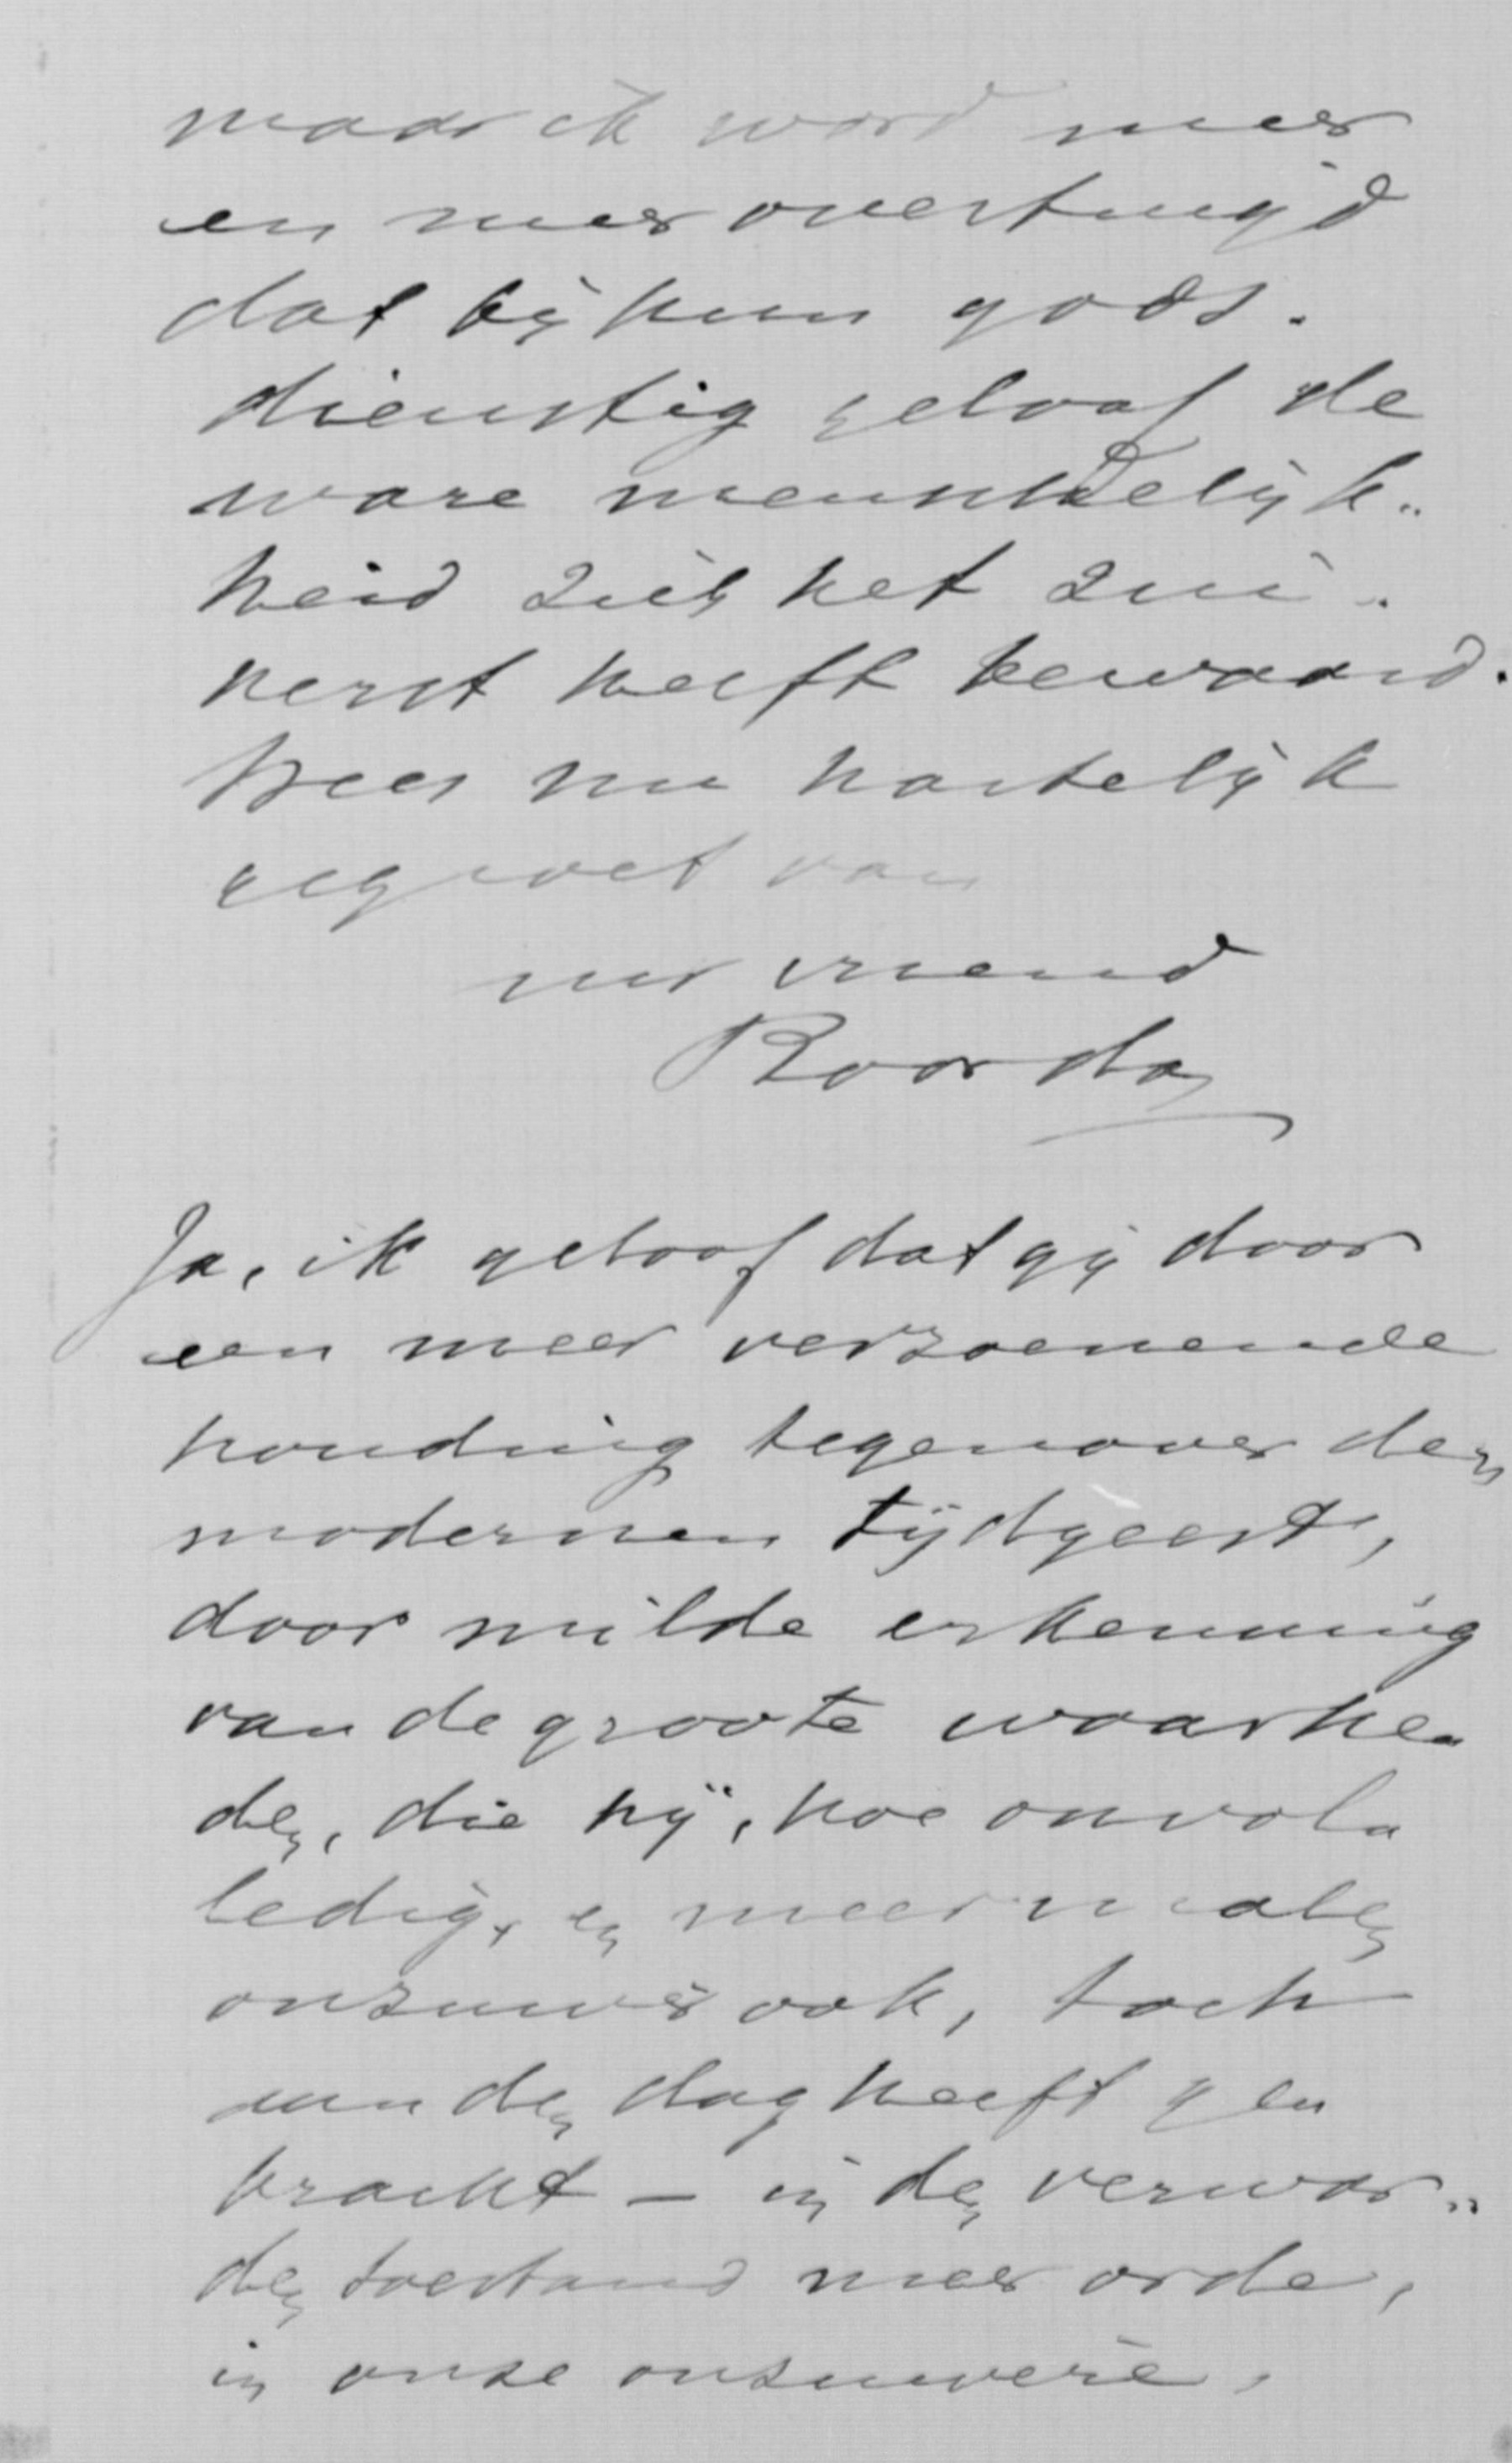 maar ik word meer
en meer overtuigd
dat bij hun gods-
dienstig geloof de
ware menschelijk-
heid zich het zui-
verst heeft bewaard.
Wees nu hartelijk
gegroet van
uw vriend
Roorda
Ja, ik geloof dat gij door
een meer verzoenende
houding tegenover den
modernen tijdgeest,
door milde erkenning
van de groote waarhe-
den, die hij, hoe onvol-
ledig, en meermalen
onzuiver ook, toch
aan den dag heeft ge-
bracht – in den verwar-
den toestand meer orde,
in onze onzuivere,